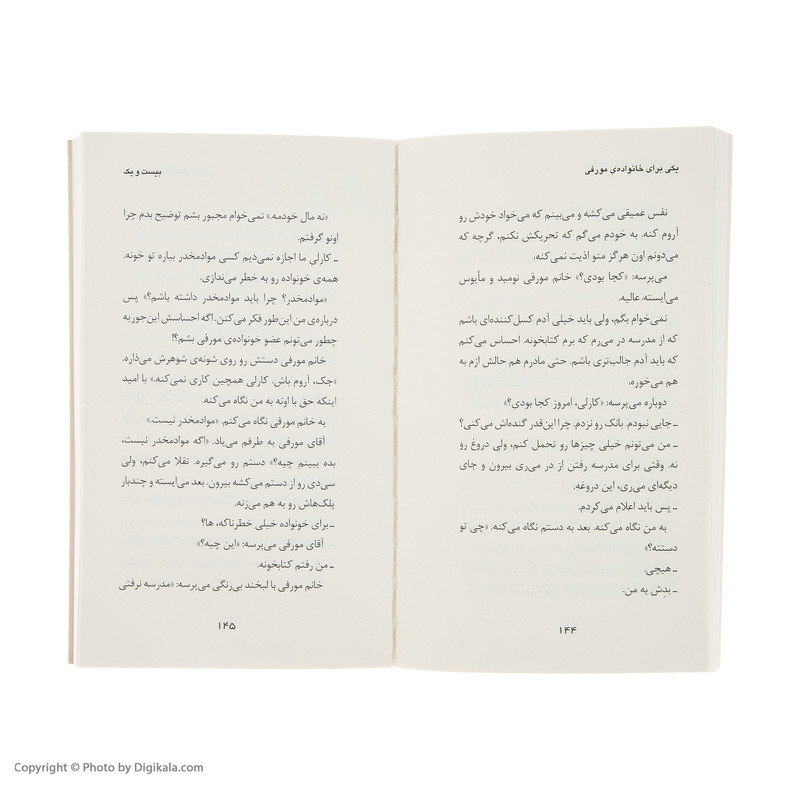 یکی برای خانواده‌ی مورفی
نفس عمیقی می‌کشه و می‌بینم که می‌خواد خودش رو
آروم کنه. به خودم می‌گم که تحریکش نکنم، گرچه که
می‌دونم اون هرگز منو اذیت نمی‌کنه.
می‌پرسه: «کجا بودی؟» خانم مورفی نومید و مأیوس
می‌ایسته. عالیه.
نمی‌خوام بگم، ولی باید خیلی آدم کسل‌کننده‌ای باشم
که از مدرسه در می‌رم که برم کتابخونه. احساس می‌کنم
که باید آدم جالب‌تری باشم. حتی مادرم هم حالش ازم به
هم می‌خوره.
دوباره می‌پرسه: «کارلی، امروز کجا بودی؟»
ـ جایی نبودم. بانک رو نزدم. چرا این‌قدر گنده‌اش می‌کنی؟
ـ من می‌تونم خیلی چیزها رو تحمل کنم، ولی دروغ رو
نه. وقتی برای مدرسه رفتن از در می‌ری بیرون و جای
دیگه‌ای می‌ری، این دروغه.
ـ پس باید اعلام می‌کردم.
به من نگاه می‌کنه. بعد به دستم نگاه می‌کنه. «چی تو
دستته؟»
ـ هیچی.
ـ بدش به من.
۱۴۴
بیست و یک
«نه مال خودمه.» نمی‌خوام مجبور بشم توضیح بدم چرا
اونو گرفتم.
ـ کارلی ما اجازه نمی‌دیم کسی موادمخدر بیاره تو خونه.
همه‌ی خونواده رو به خطر می‌ندازی.
«موادمخدر؟ چرا باید موادمخدر داشته باشم؟» پس
درباره‌ی من این‌طور فکر می‌کنن. اگه احساسش این‌جوریه
چطور می‌تونم عضو خونواده‌ی مورفی بشم؟!
خانم مورفی دستش رو روی شونه‌ی شوهرش می‌ذاره.
«جک، آروم باش. کارلی همچین کاری نمی‌کنه.» با امید
اینکه حق با اونه به من نگاه می‌کنه.
به خانم مورفی نگاه می‌کنم. «موادمخدر نیست.»
آقای مورفی به طرفم می‌یاد. «اگه موادمخدر نیست،
بده ببینم چیه؟» دستم رو می‌گیره. تقلا می‌کنم، ولی
سی‌دی رو از دستم می‌کشه بیرون. بعد می‌ایسته و چندبار
پلک‌هاش رو به هم می‌زنه.
ـ برای خونواده خیلی خطرناکه، ها؟
آقای مورفی می‌پرسه: «این چیه؟»
ـ من رفتم کتابخونه.
خانم مورفی با لبخند بی‌رنگی می‌پرسه: «مدرسه نرفتی
۱۴۵
Copyright © Photo by Digikala.com